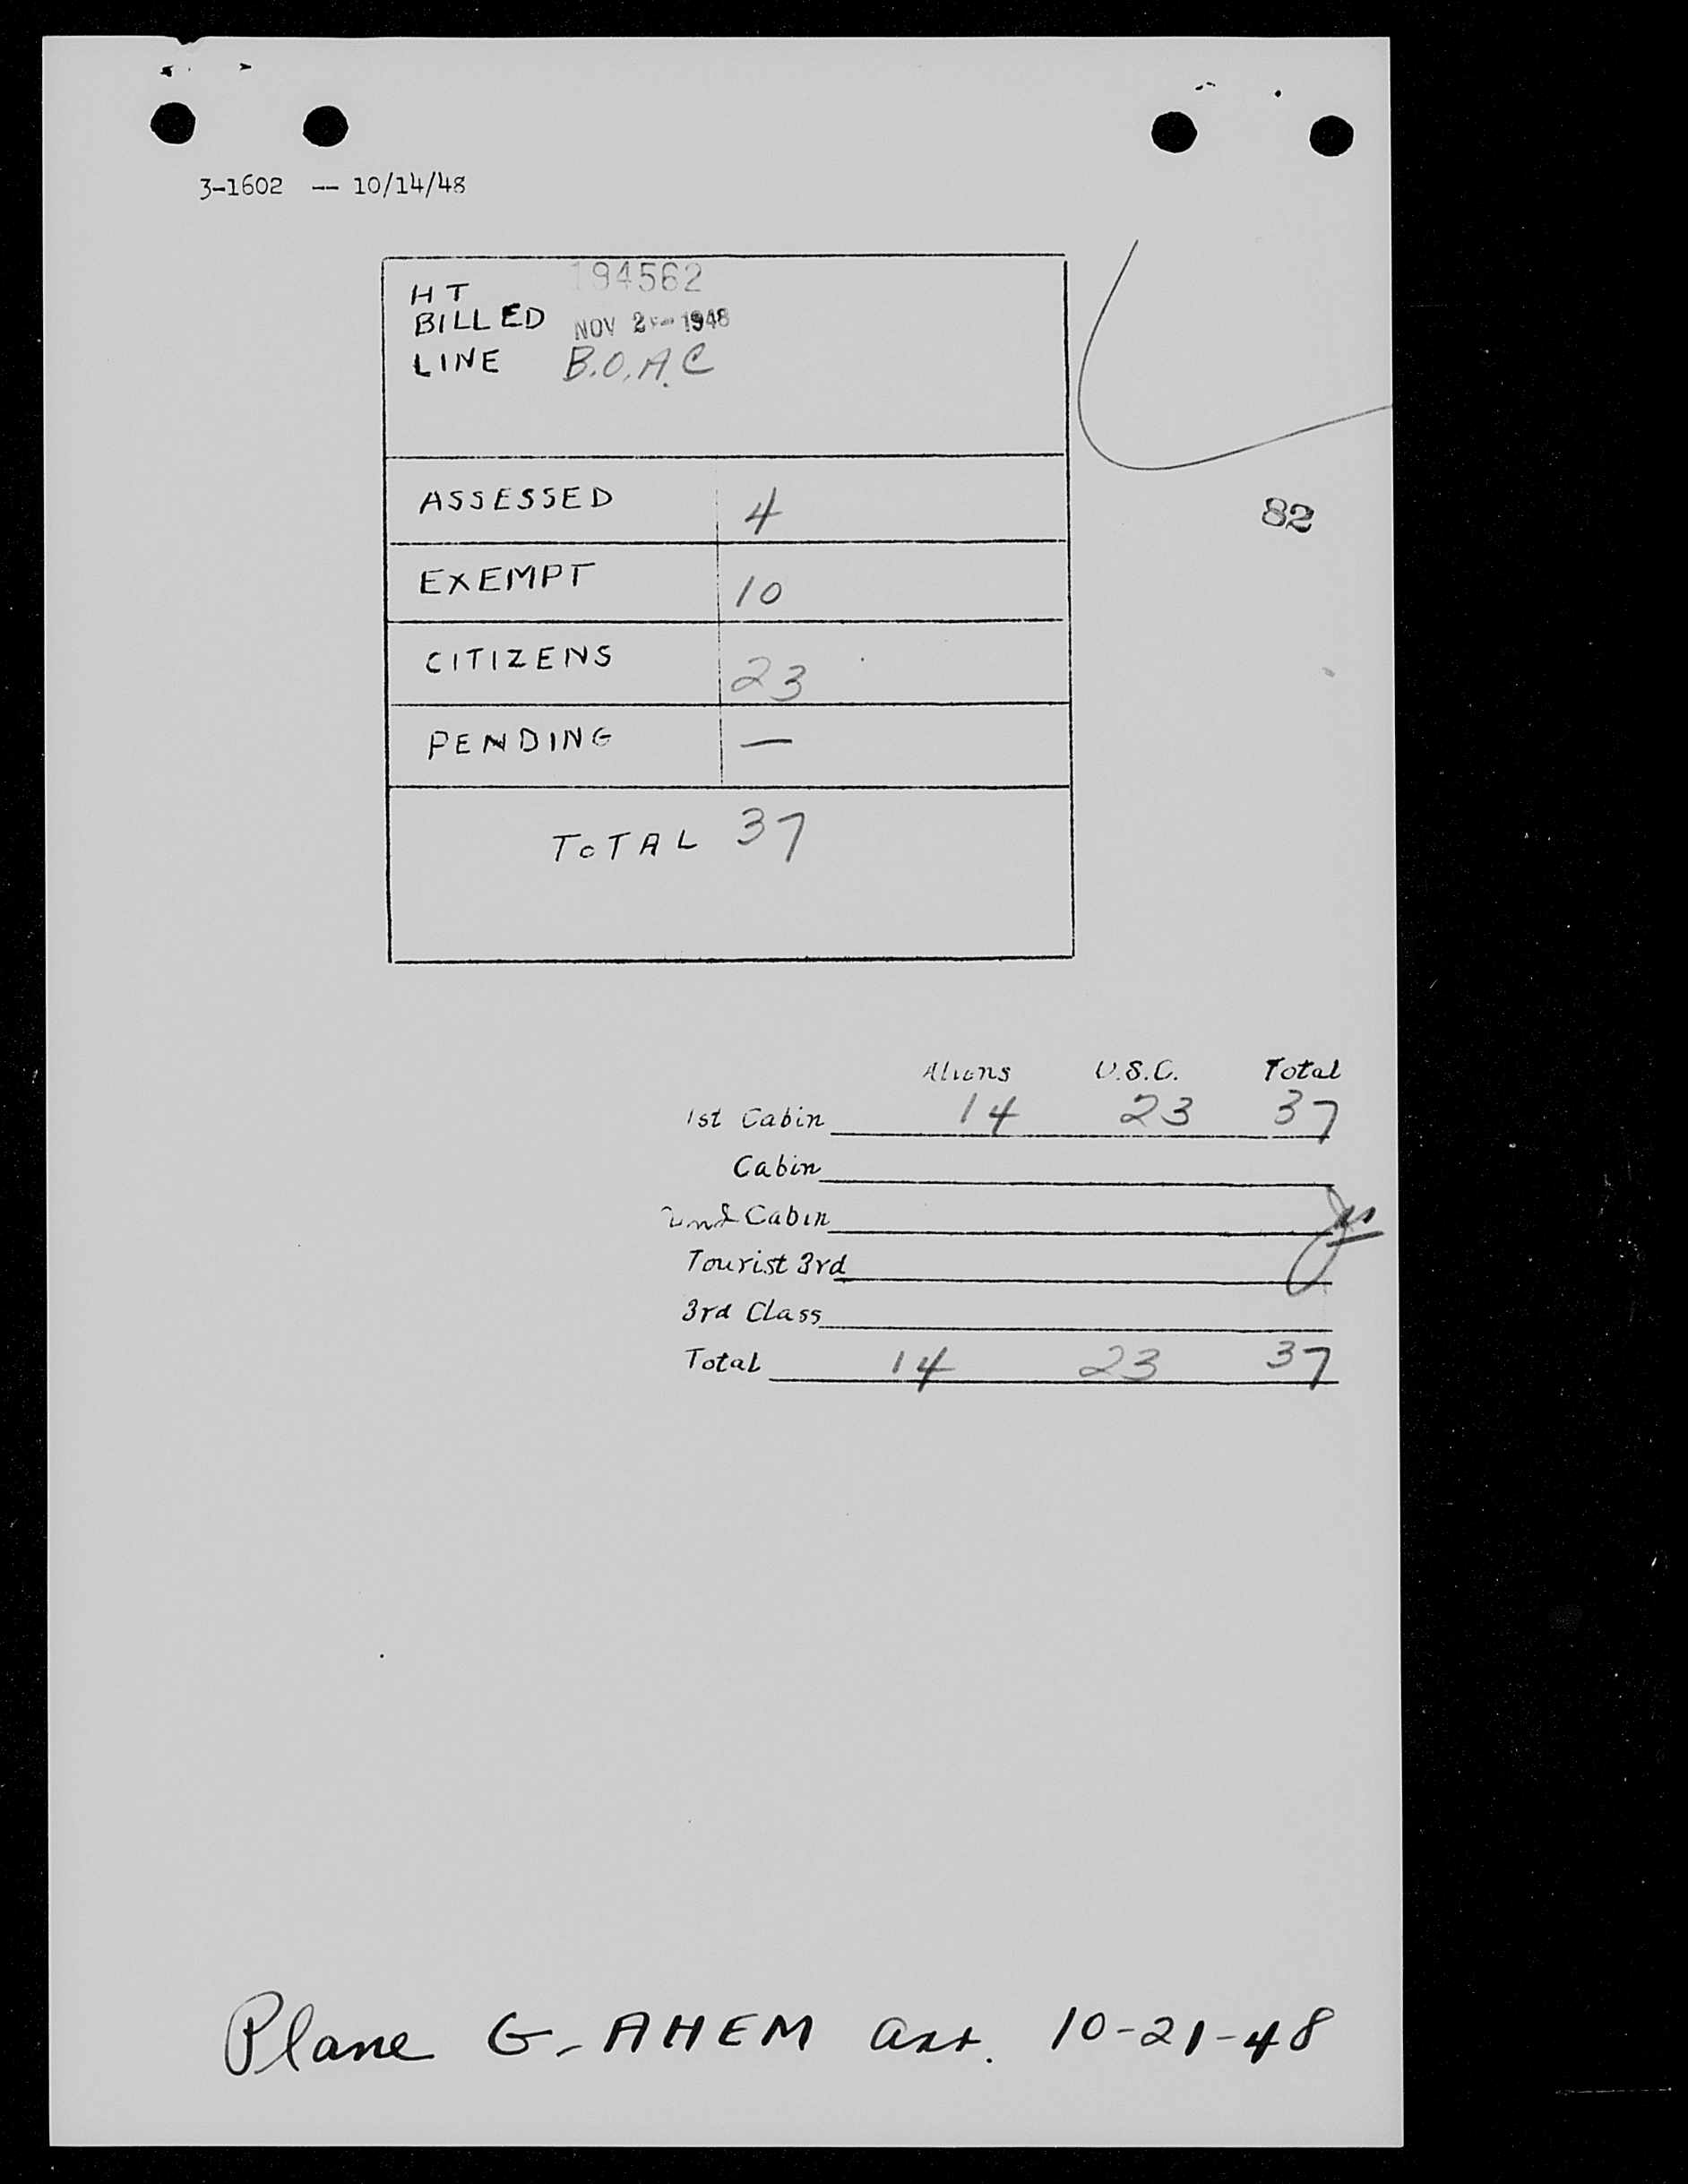 3-1602 -- 10/14/48
194562
HT
BILLED NOV 2 - 1948
LINE B.O.A.C
ASSESSED 4
82
EXEMPT 10
CITIZENS 23
PENDING —
TOTAL 37
Aliens U.S.C. Total
1st Cabin 14 23 37
Cabin
2nd Cabin
Tourist 3rd
3rd Class
Total 14 23 37
Plane G-AHEM arr. 10-21-48